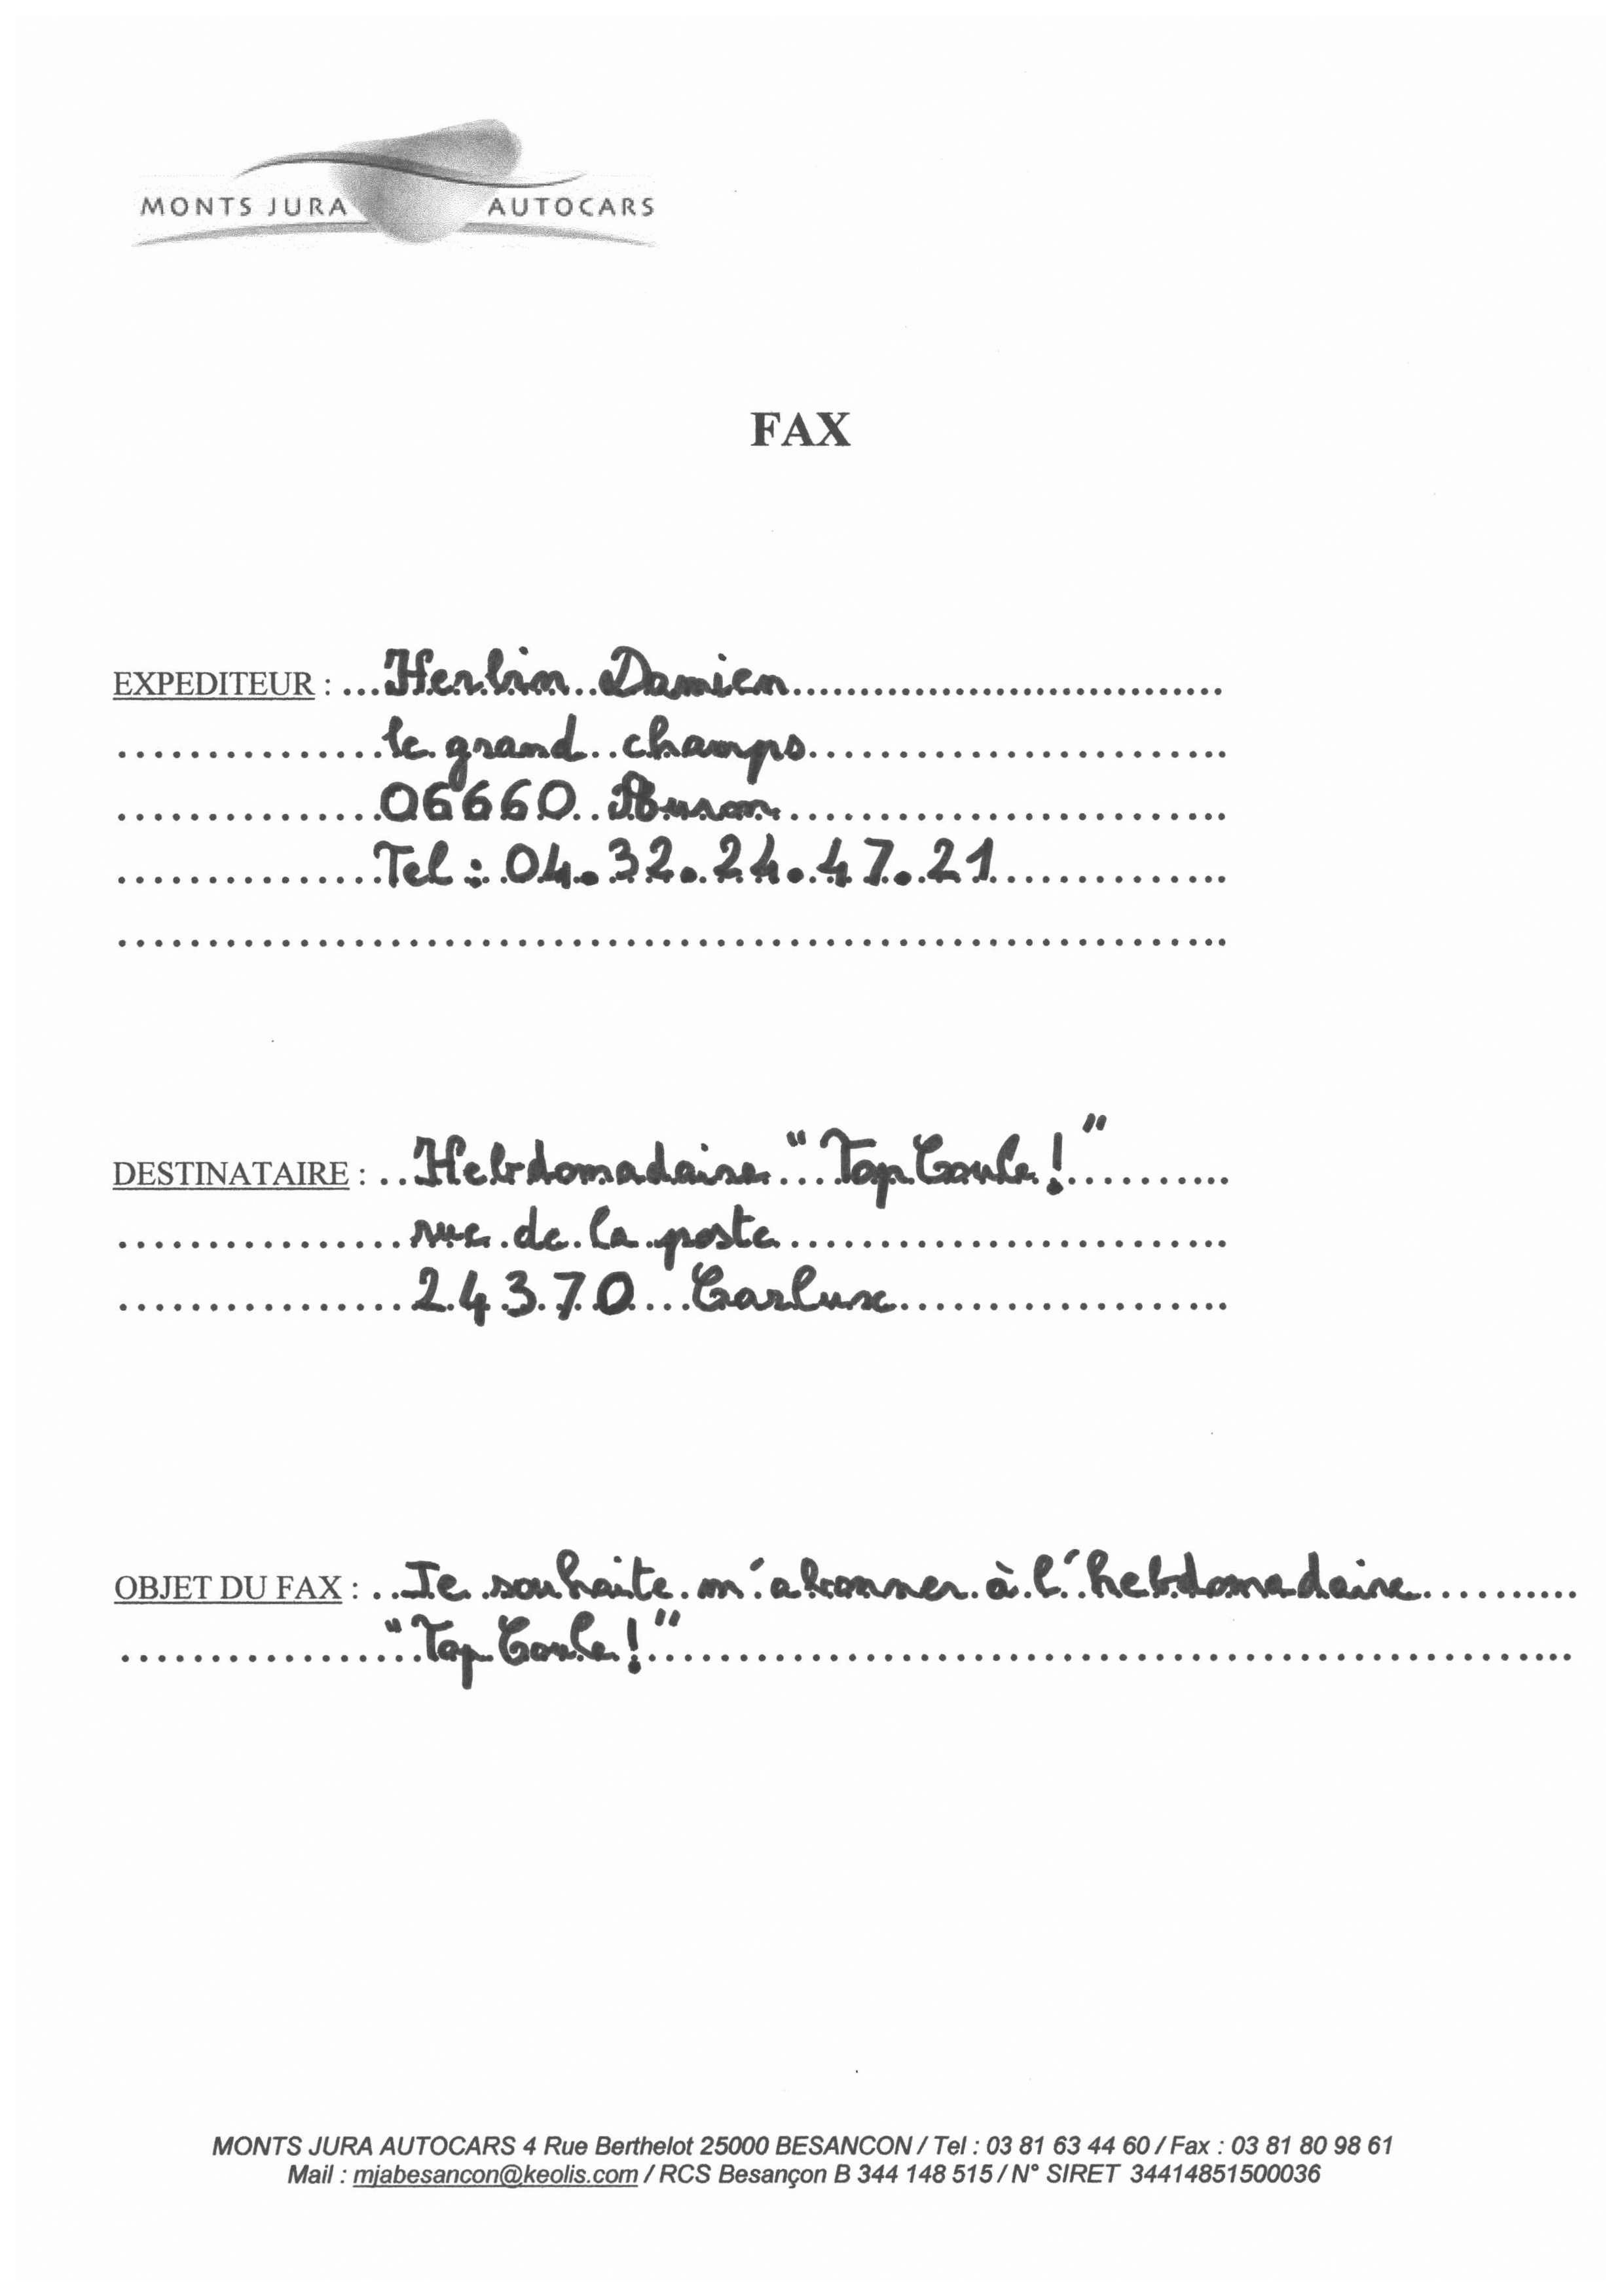 MONTS JURA AUTOCARS
FAX
EXPEDITEUR : Herbin Damien
le grand champs
06660 Auron
Tel : 04.32.24.47.21
DESTINATAIRE : Hebdomadaire "Top Coule !"
rue de la poste
24370 Carlux
OBJET DU FAX : Je souhaite m'abonner à l'hebdomadaire
"Top Coule !"
MONTS JURA AUTOCARS 4 Rue Berthelot 25000 BESANCON / Tel : 03 81 63 44 60 / Fax : 03 81 80 98 61
Mail : mjabesancon@keolis.com / RCS Besançon B 344 148 515 / N° SIRET 34414851500036